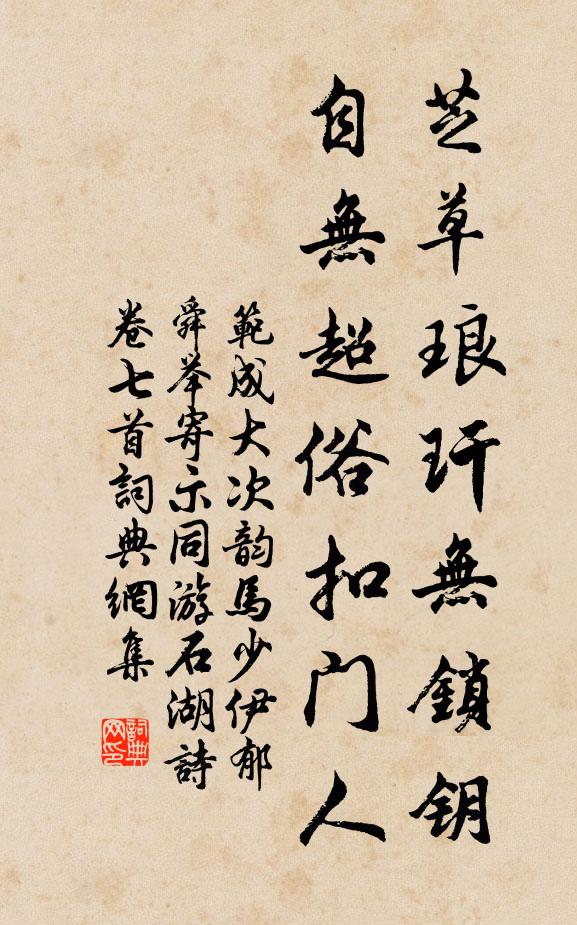 芝草琅玕無鎖钥
自無超俗扣門人
範成大次韵馬少伊郁
舜举寄示同游石湖詩
卷七首詞典網集
詞典网印